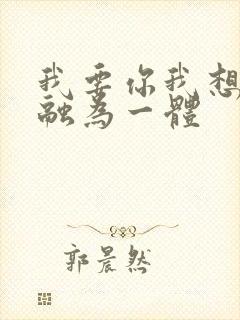 我要你我想
融為一體
郭晨然